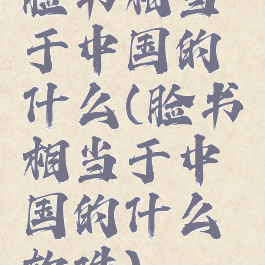 脸书相当
于中国的
什么(脸书
相当于中
国的什么
软件)